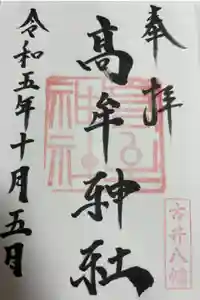 奉拝
高牟神社
令和五年十月五日
古井八幡